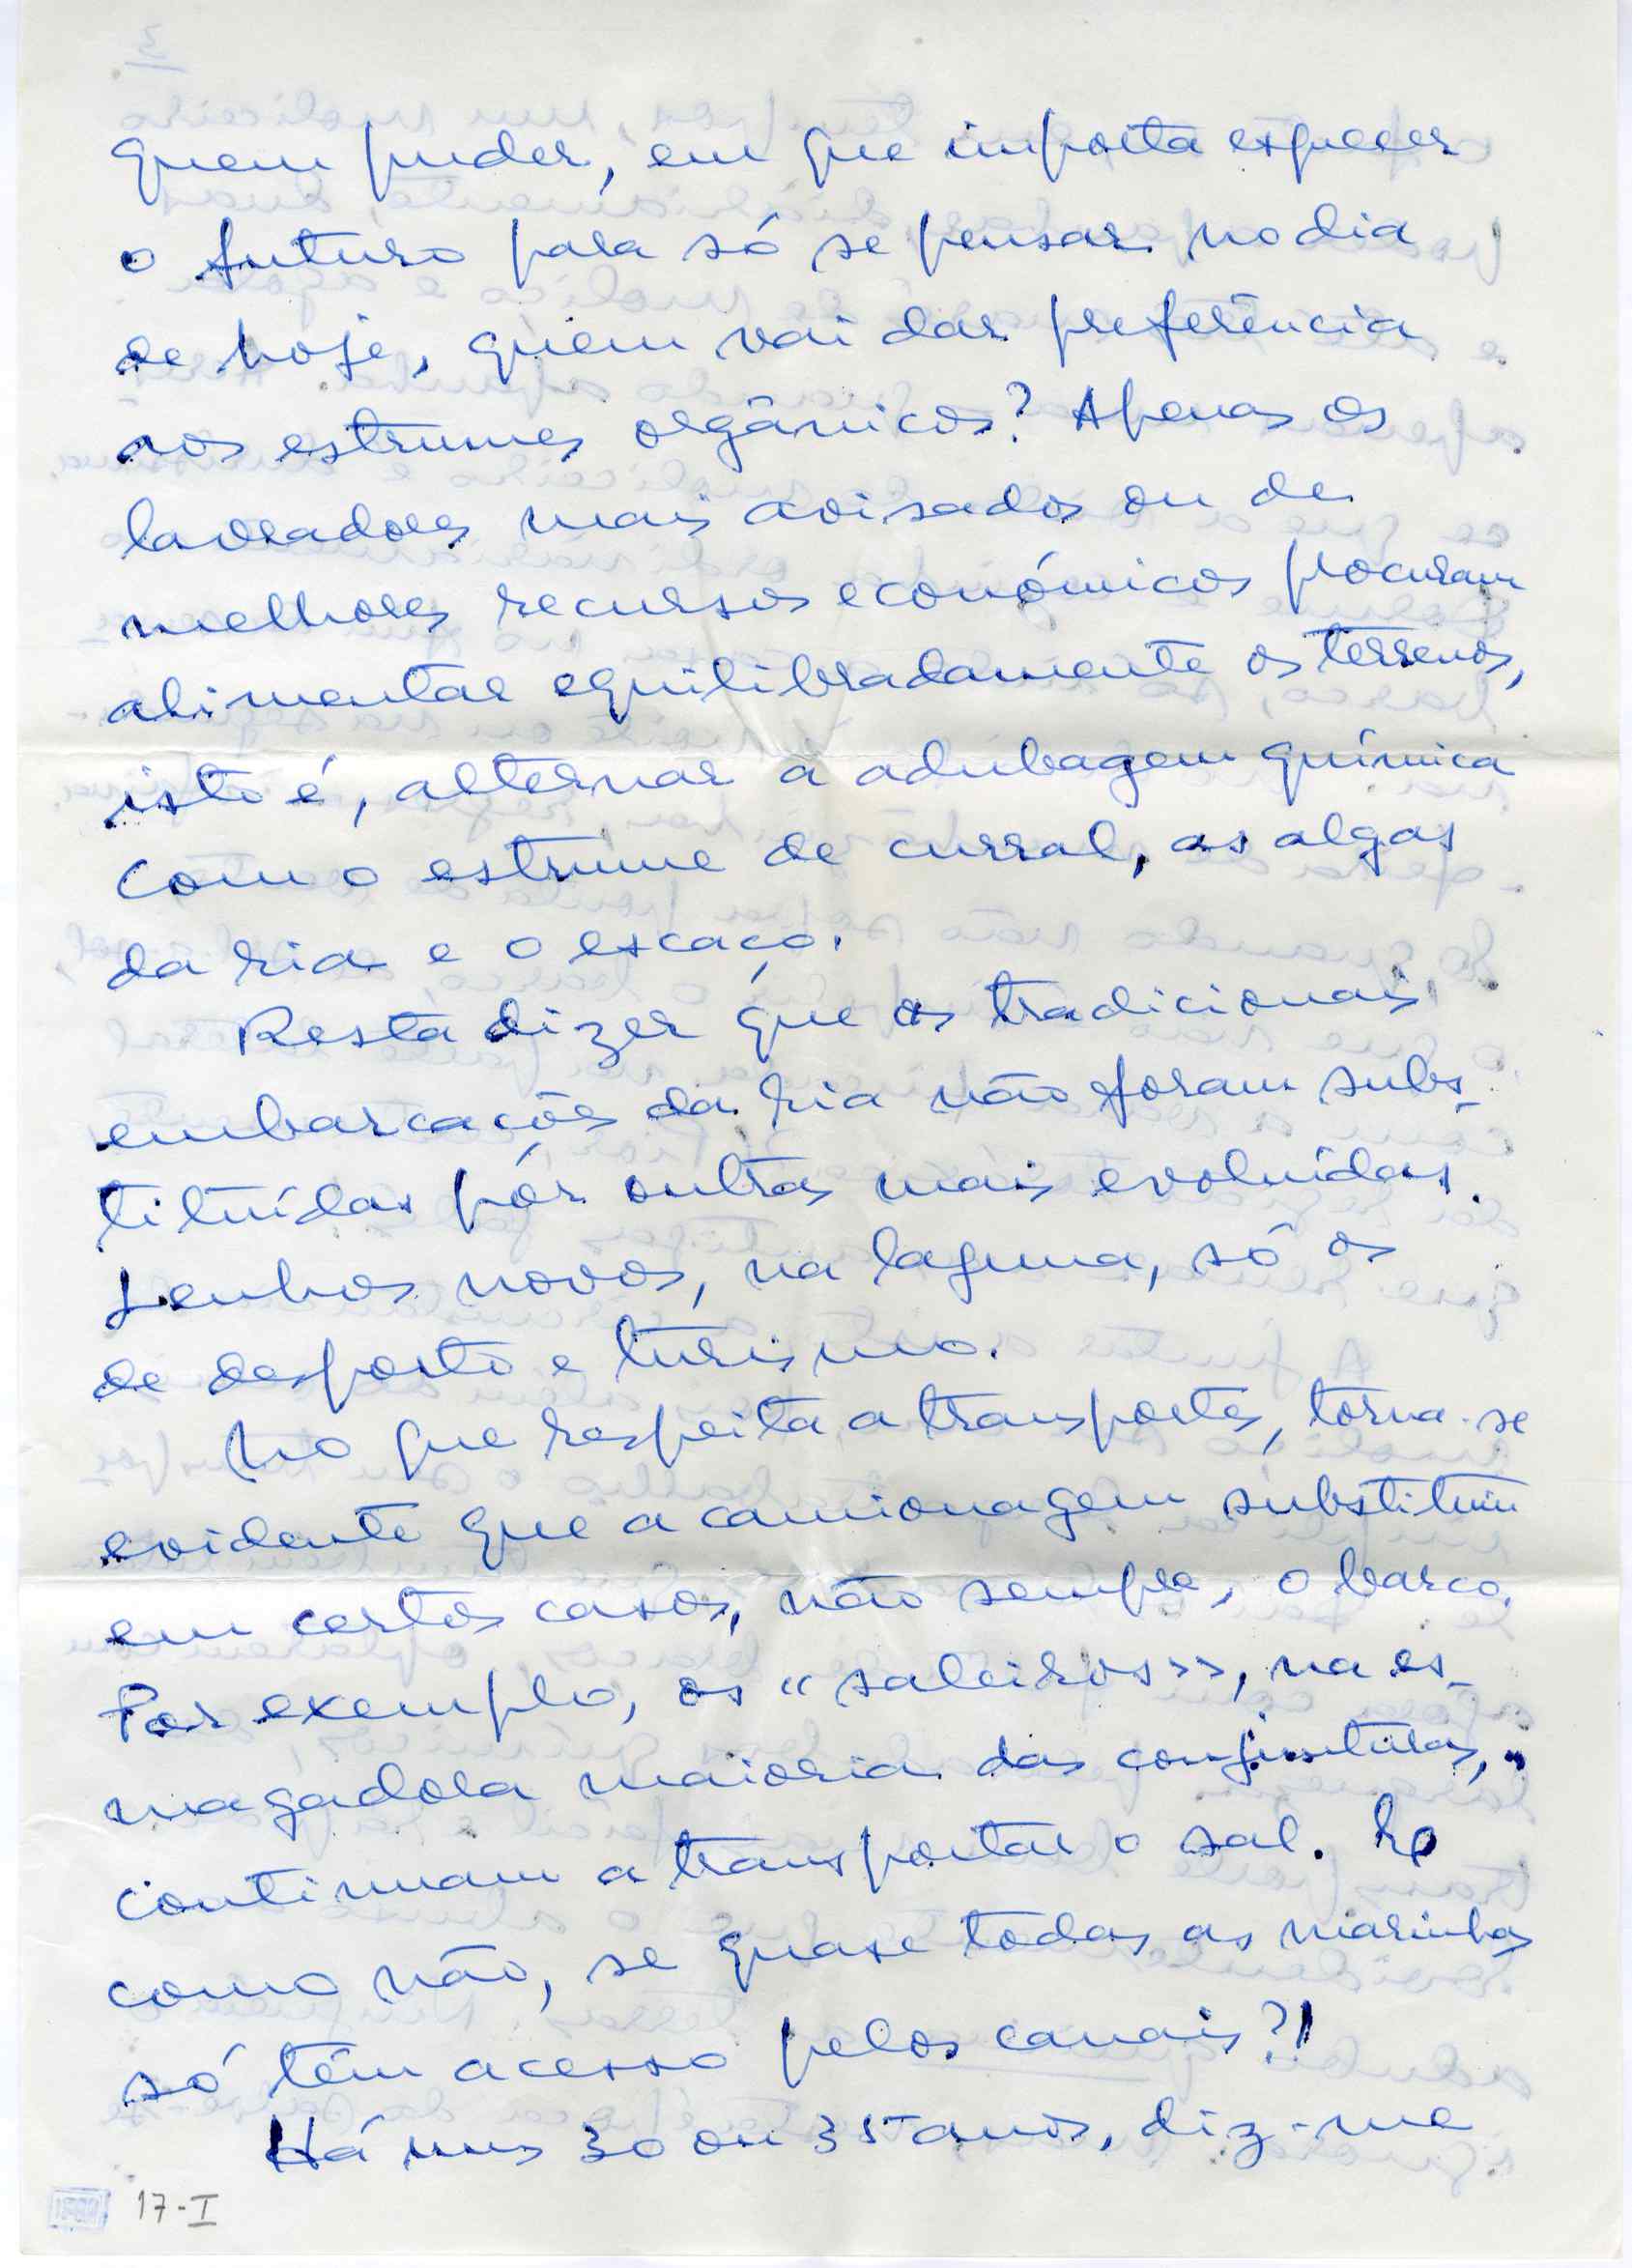 quem puder, em que importa esquecer
o futuro para só se pensar no dia
de hoje, quem vai dar preferência
aos estrumes orgânicos? Apenas os
lavradores mais avisados ou de
melhores recursos económicos procuram
alimentar equilibradamente os terrenos,
isto é, alternar a adubagem química
com o estrume de curral, as algas
da ria e o escaço.
Resta dizer que as tradicionais
embarcações da ria não foram subs-
tituídas por outras mais evoluídas.
Lenhos novos, na laguna, só os
de desporto e turismo.
No que respeita a transportes, torna-se
evidente que a camionagem substituiu
em certos casos, não sempre, o barco.
Por exemplo, os «saleiros», na es-
magadora maioria das conjunturas,
continuam a transportar o sal.
como não, se quase todas as marinhas
só têm acesso pelos canais?!
Há uns 30 ou 35 anos, diz-me
17-I